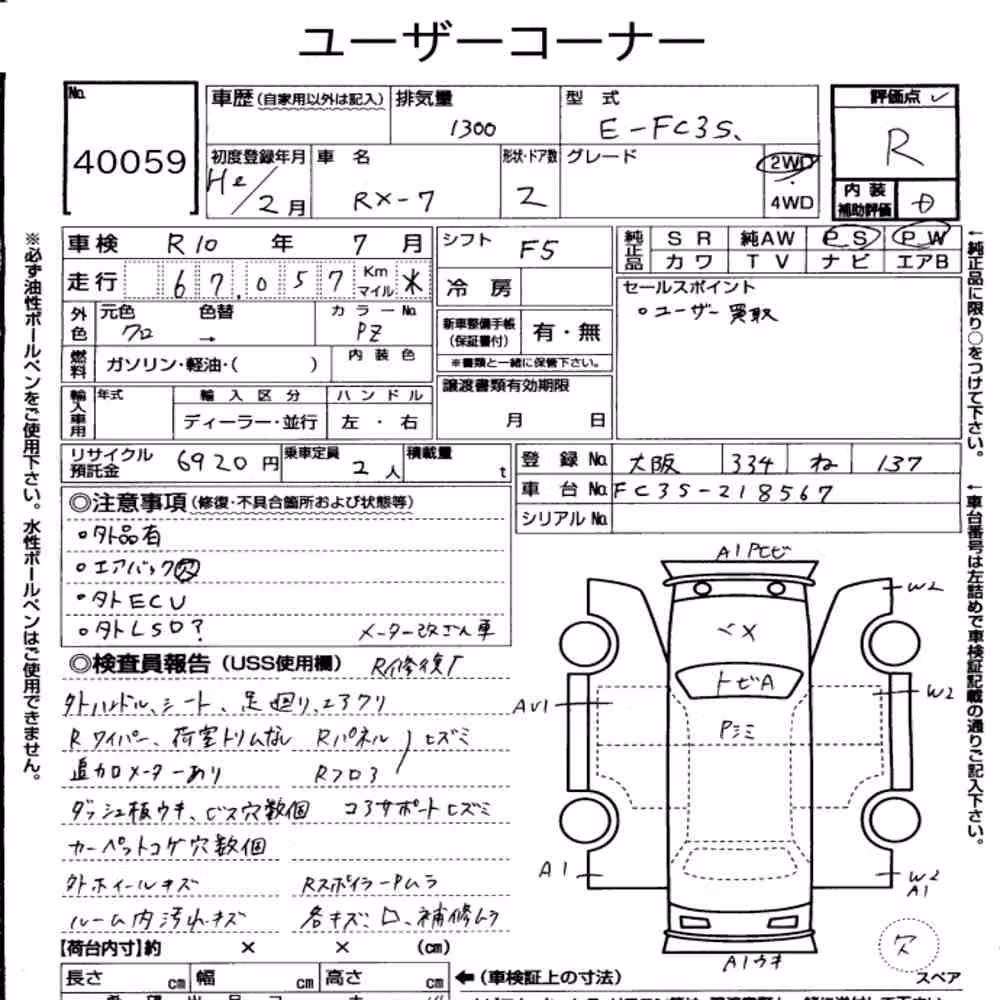 ユーザーコーナー
No. 40059
車歴(自家用以外は記入) 排気量 1300 型式 E-FC3S、
評価点 R
初度登録年月 He/2月 車名 RX-7 形状・ドア数 2 グレード 2WD 4WD
内装補助評価
車検 R10年 7月
走行 67,057 Km マイル
外色 元色 クロ 色替 → カラーNo. PZ
燃料 ガソリン・軽油・( ) 内装色
輸入車用 年式 輸入区分 ディーラー・並行 ハンドル 左・右
シフト F5
冷房
新車整備手帳(保証書付) 有・無
※書類と一緒に保管下さい。
譲渡書類有効期限 月 日
純正品 SR 純AW PS PW
カワ TV ナビ エアB
セールスポイント
・ユーザー買取
リサイクル預託金 6920円 乗車定員 2人 積載量 t
登録No. 大阪 334 ね 137
車台No. FC3S-218567
シリアルNo.
◎注意事項(修復・不具合箇所および状態等)
・外品有
・エアバック欠
・外ECU
・外LSD? メーター改ざん車
◎検査員報告(USS使用欄) R修復歴
外ハンドル、シート、足廻り、エアクリ
Rワイパー、荷室トリムなし Rパネル ヒズミ
追加メーターあり Rフロア
ダッシュ板ウキ、ビス穴数個 コアサポートヒズミ
カーペットコゲ穴数個
外ホイールキズ RスポイラーPムラ
ルーム内汚れ、キズ 各キズ、凹、補修ムラ
【荷台内寸】約 × × (cm)
長さ cm 幅 cm 高さ cm
←(車検証上の寸法)
A1Pヒビ
W2
くメ
トビA
AV1
W2
Pミミ
A1
W2
A1
A1ウキ
欠
スペア
※必ず油性ボールペンをご使用下さい。水性ボールペンはご使用できません。
←純正品に限り○をつけて下さい。
←車台番号は左詰めで車検証記載の通りご記入下さい。